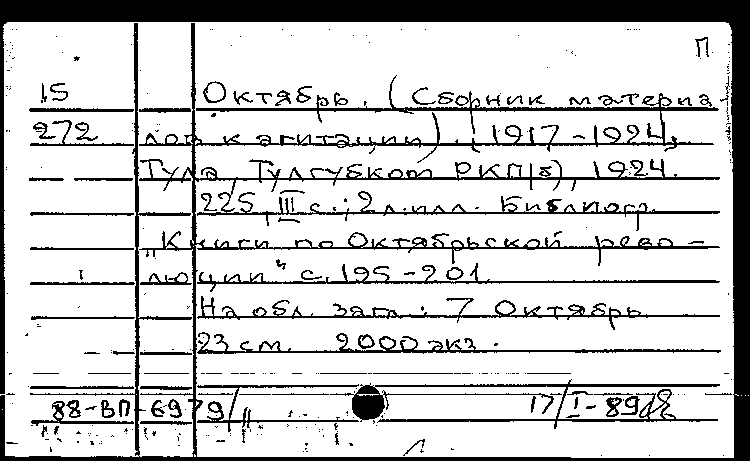 П
15 Октябрь. (Сборник материа-
272 лов к агитации). [1917-1924],
Тула, Тулгубком РКП(б), 1924.
225, III с.; 2 л. илл. Библиогр.
"Книги по Октябрьской рево-
люции" с. 195-201.
На обл. загл.: 7 Октябрь
23 см. 2000 экз.
88-ВП-6979/ 17/I-89